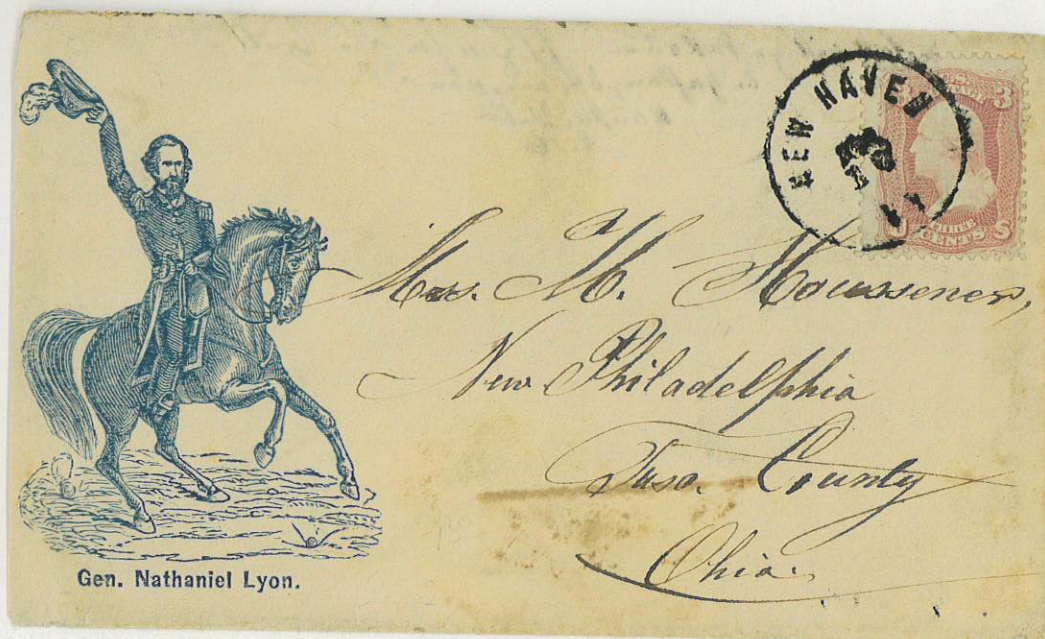 NEW HAVEN
U.S. POSTAGE
3
THREE CENTS
Mrs. M. Houssener,
New Philadelphia
Tusc. County
Ohio.
Gen. Nathaniel Lyon.